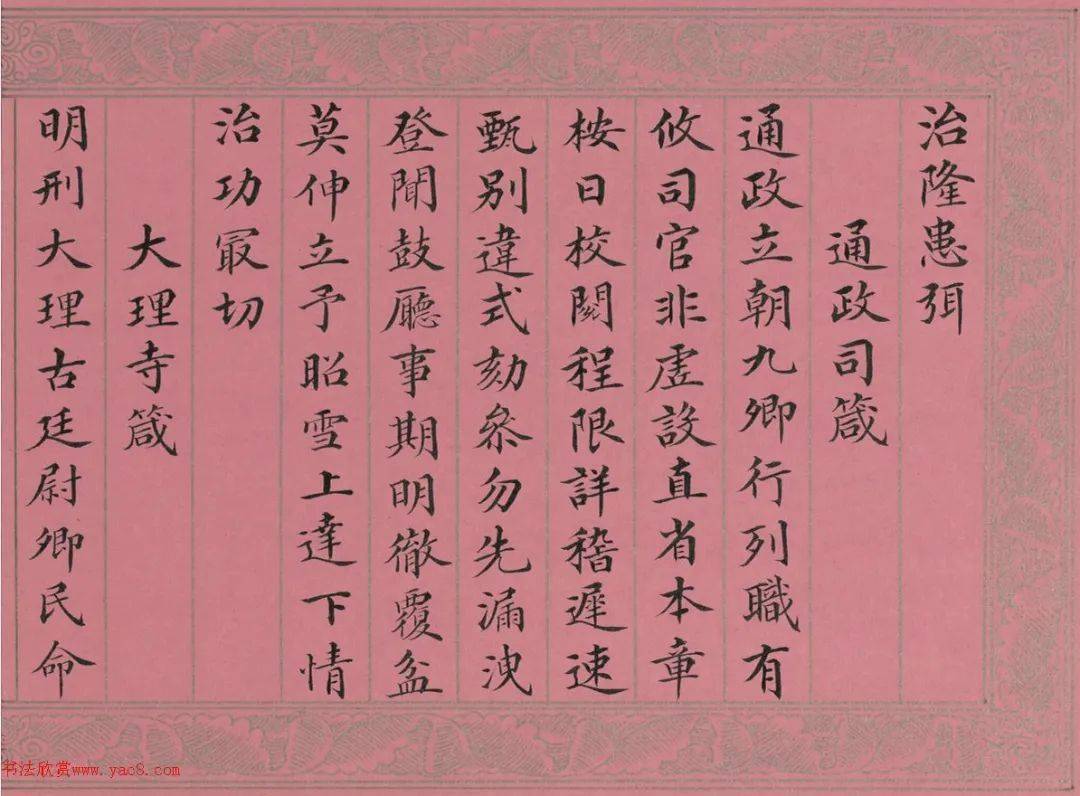 治隆患弭
通政司箴
通政立朝九卿行列職有
攸司官非虛設直省本章
桉日校閱程限詳稽遲速
甄別違式劾叅勿先漏洩
登聞鼓廳事期明徹覆盆
莫伸立予昭雪上達下情
治功冣切
大理寺箴
明刑大理古廷尉卿民命
书法欣赏www.yac8.com